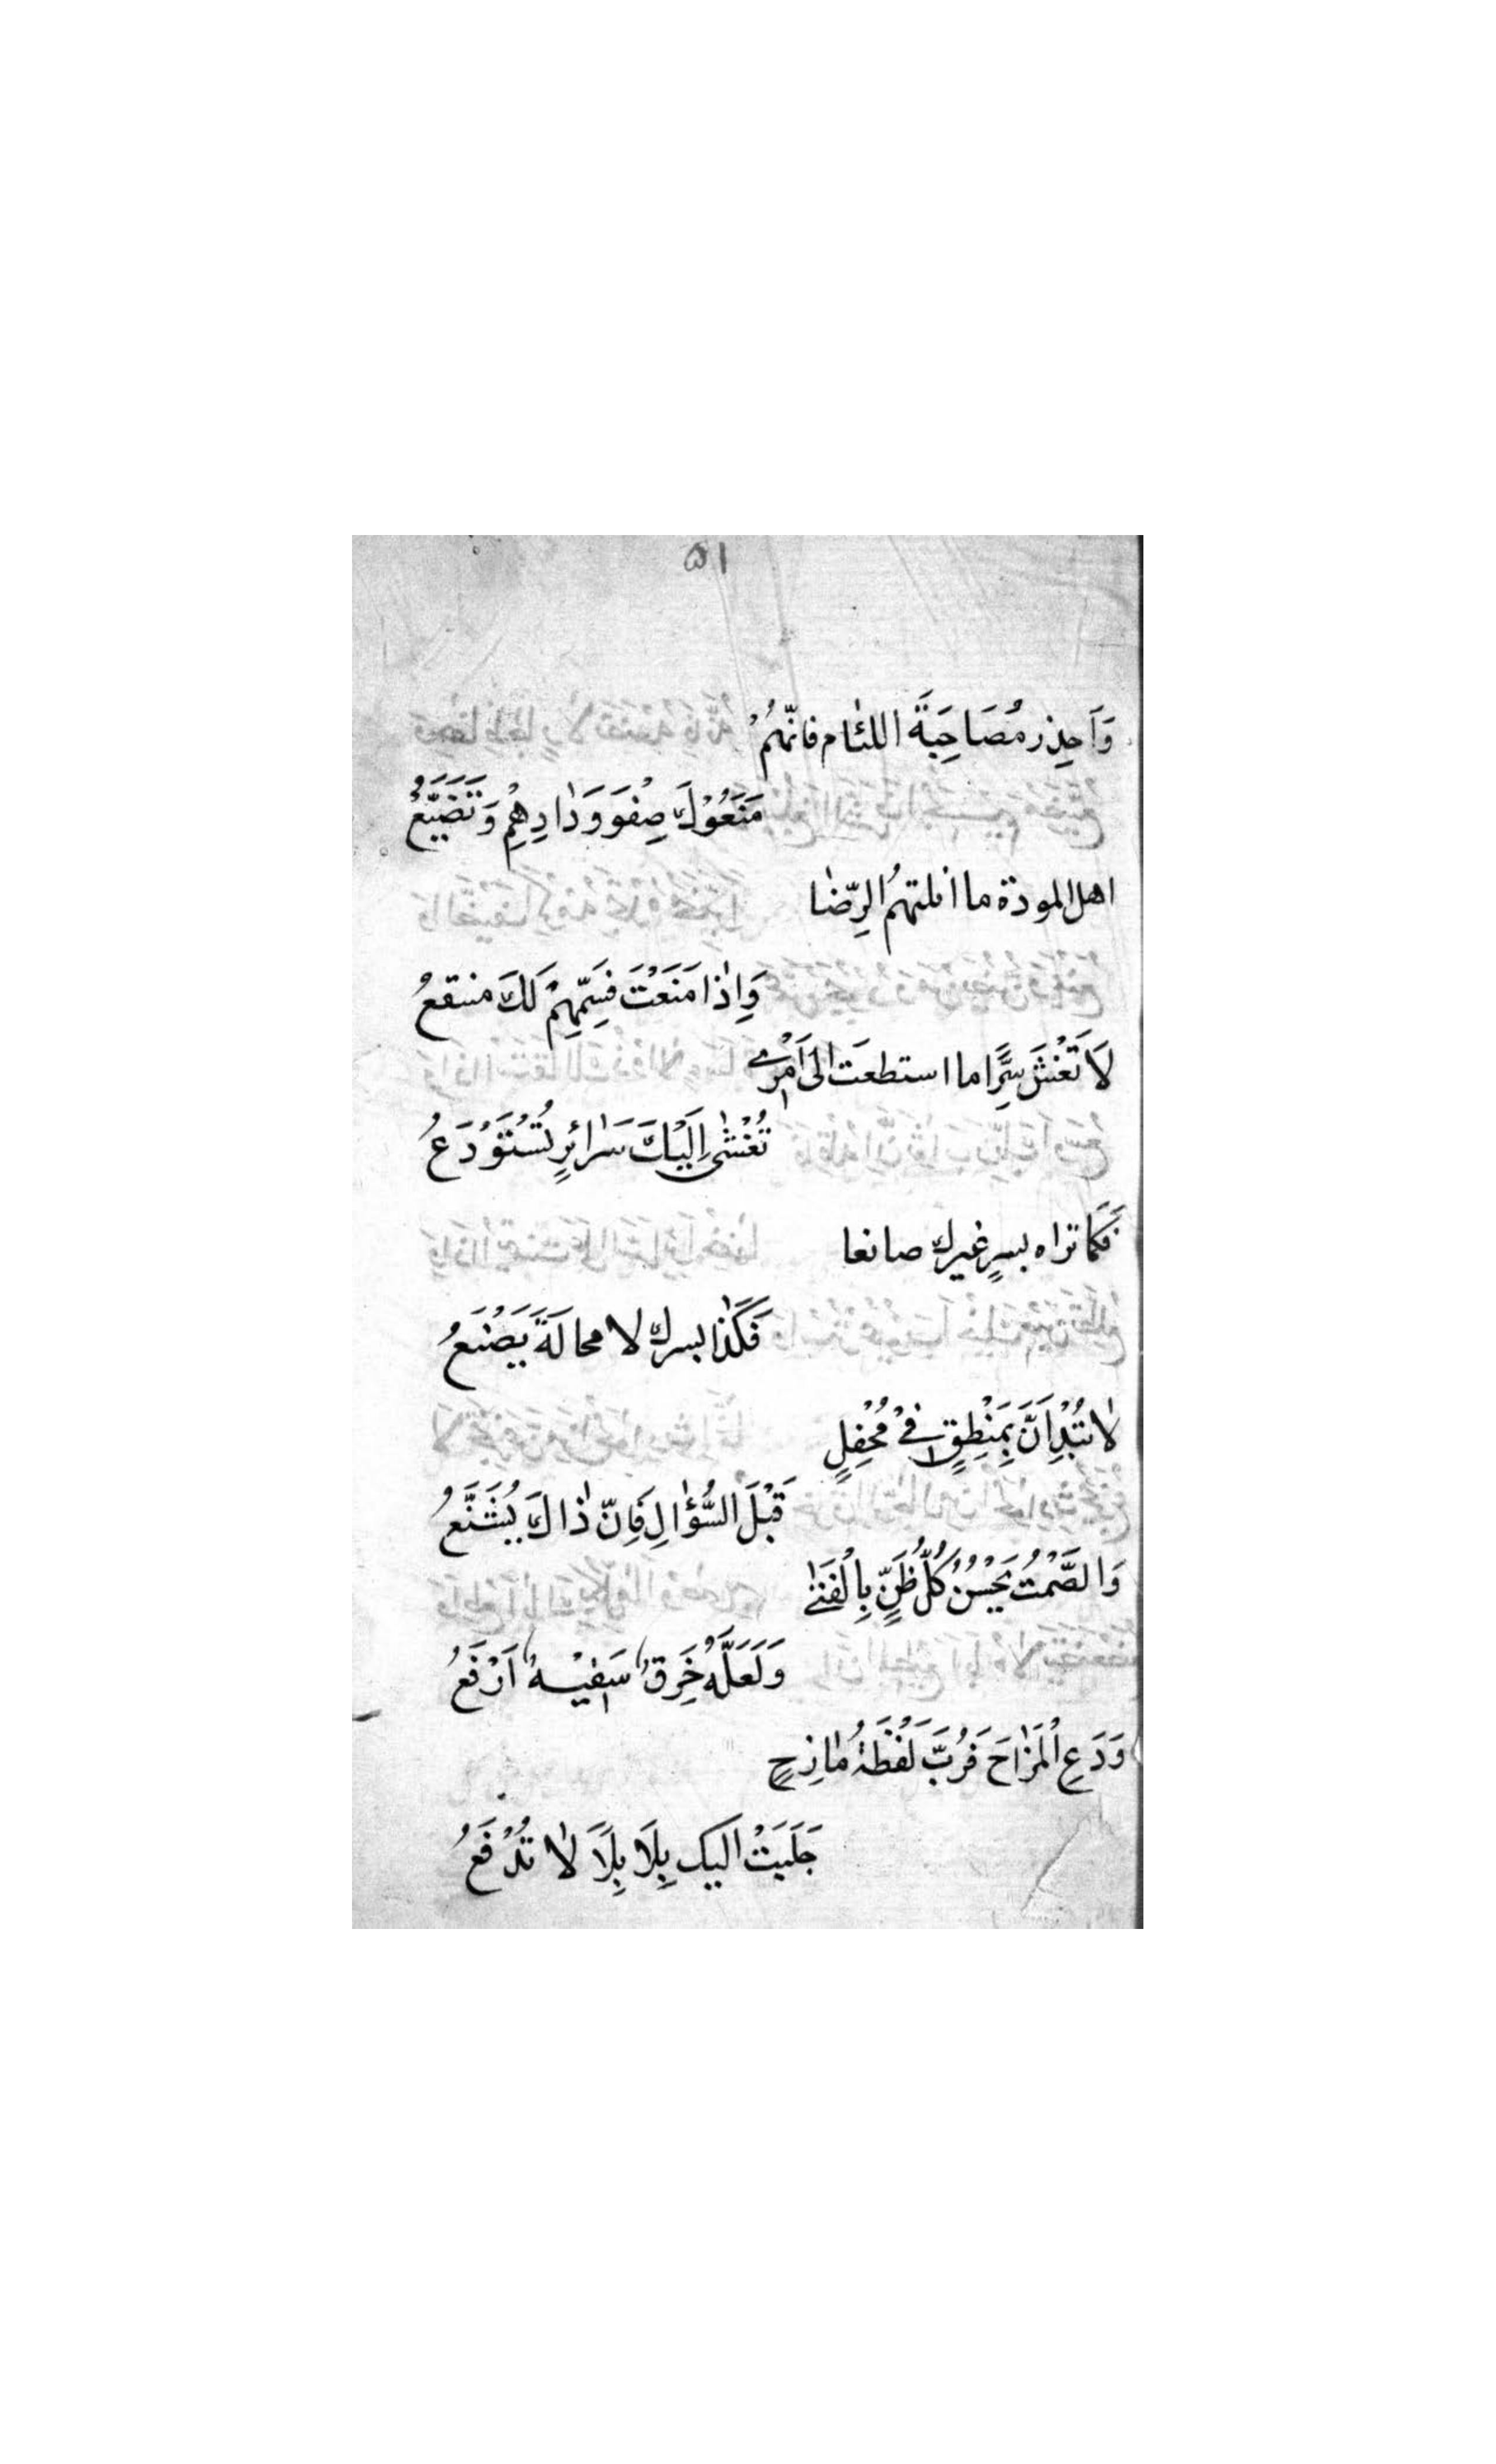 ۵۱
وَاَحِذر مُصَاحِبَةَ اللئام فانّهُمْ
مَنَعُوْكَ صِفْوَ وَدٰادِهِمْ وَتَضَيَّعُ
اهل المودة ما انلتهمُ الرِّضٰا
وَاِذٰا مَنَعْتَ فَسِمّهِمْ لَكَ منتقعُ
لَا تَغْشَ سِرًّا ما استطعَت الى اَمْرِءٍ
تُغْشٰى اِلَيْكَ سَرٰائرٍ تُسْتَوْدَعُ
فَكَما تراه بسرٍ غيرك صانعا
فَكَذٰا بسرك لا محالَةَ يَصْنَعُ
لٰا تَبْدِاَنَّ بِمَنْطِقٍ فِيْ مُحْفِلٍ
قَبْلَ السُّؤٰالِ فَاِنّ ذٰاكَ يُشَنَّعُ
وَالصَّمْتُ يَحْسُنُ كُلُّ ظَنٍّ بِالْفَتٰے
وَلَعَلَّهُ خَرِقٌ سَفِيْهٌ اَرْفَعُ
وَدَعِ الْمَزٰاحَ فَرُبَّ لَفْظَةُ مٰازِحٍ
جَلَبَتْ اليک بِلَابِلًا لٰا تُدْفَعُ